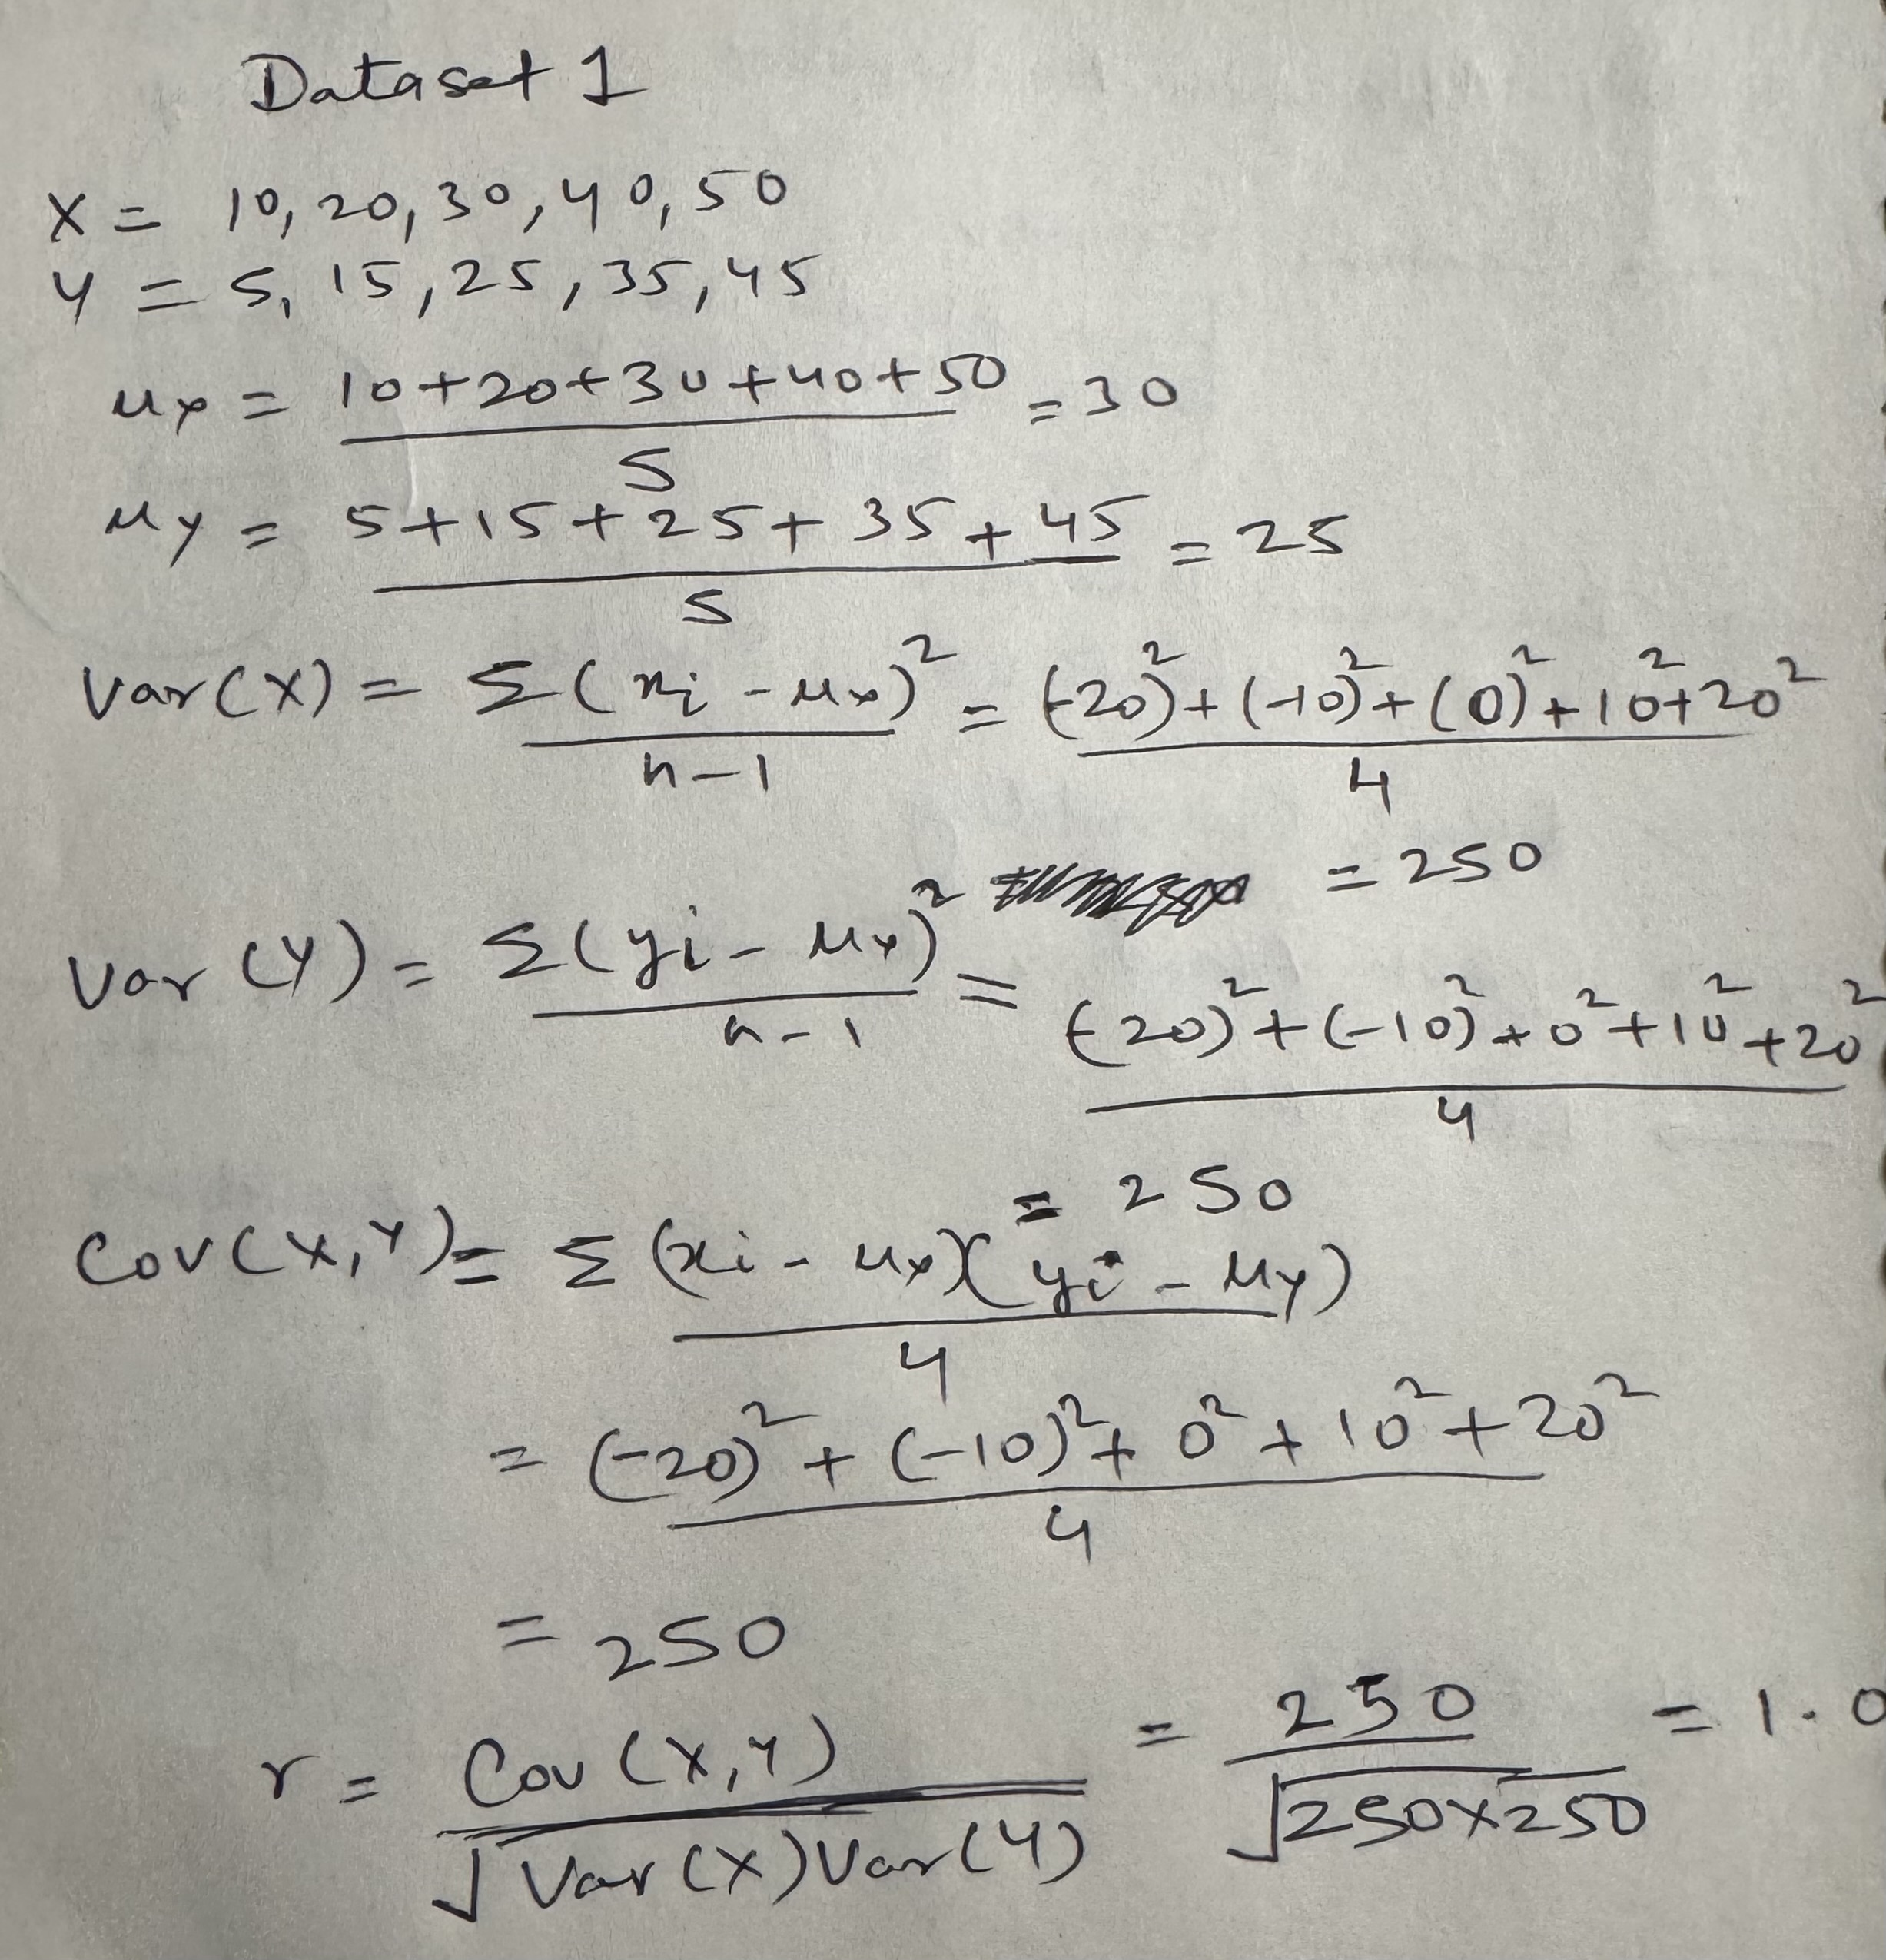 Dataset 1
X = 10, 20, 30, 40, 50
Y = 5, 15, 25, 35, 45
μx = (10+20+30+40+50)/5 = 30
μy = (5+15+25+35+45)/5 = 25
Var(X) = Σ(xi - μx)²/(n-1) = ((-20)²+(-10)²+(0)²+10²+20²)/4
= 250
Var(Y) = Σ(yi - μx)²/(n-1) = ((-20)²+(-10)²+0²+10²+20²)/4
= 250
Cov(X,Y) = Σ(xi - μx)(yi - μy)/4
= ((-20)²+(-10)²+0²+10²+20²)/4
= 250
r = Cov(X,Y)/√Var(X)Var(Y) = 250/√250×250 = 1.0